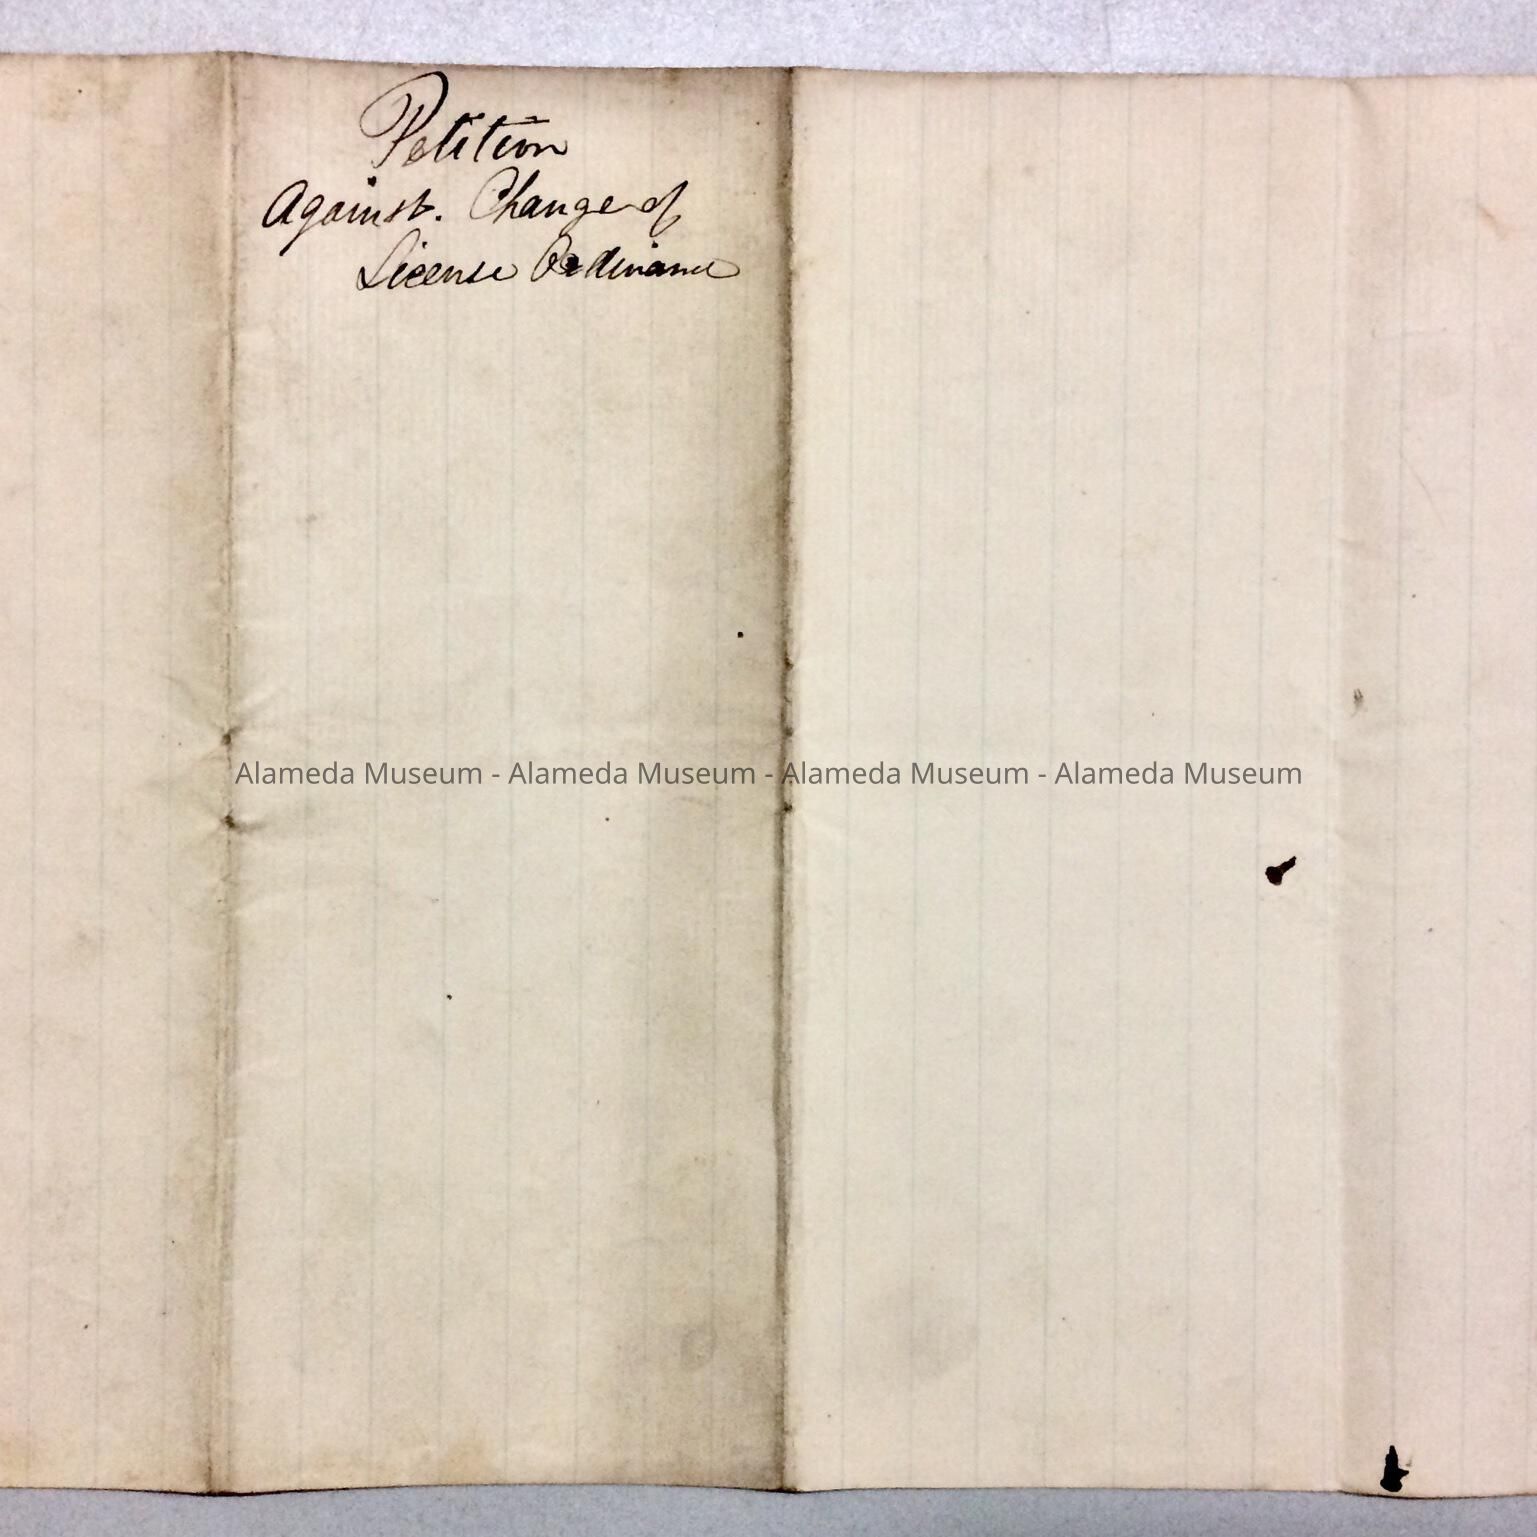 Petition
Against. Change of
License Ordinance
Alameda Museum - Alameda Museum - Alameda Museum - Alameda Museum